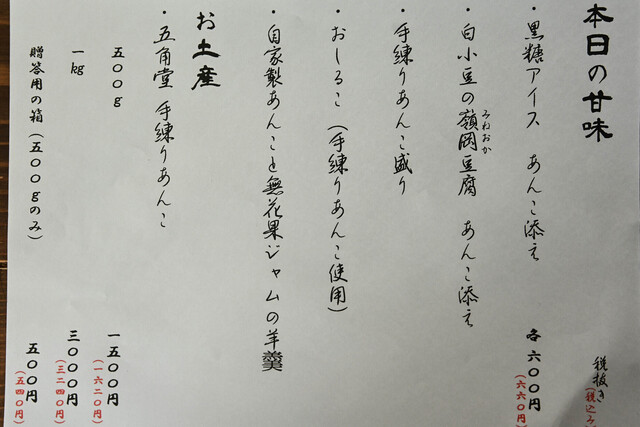 本日の甘味
税抜き
(税込み
・黒糖アイス あんこ添え
各六〇〇円
(六六〇円)
・白小豆の嶺岡豆腐 あんこ添え
みねおか
・手練りあんこ盛り
・おしるこ (手練りあんこ使用)
・自家製あんこと無花果ジャムの羊羹
お土産
・五角堂 手練りあんこ
五〇〇g
一五〇〇円
(一六二〇円)
一kg
三〇〇〇円
(三二四〇円)
贈答用の箱(五〇〇gのみ)
五〇〇円
(五四〇円)